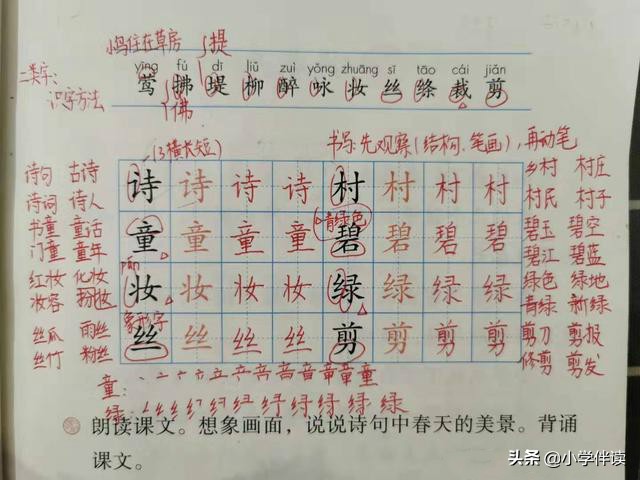 小鸟住在草房 提
yīng fú dī liǔ zuì yǒng zhuāng sī tāo cái jiǎn
二类字: 莺 拂 堤 柳 醉 咏 妆 丝 绦 裁 剪
识字方法 佛
(3横长短) 书写:先观察(结构、笔画),再动笔
诗句 古诗 诗 诗 诗 诗 村 村 村 村 乡村 村庄
诗词 诗人 村民 村子
书童 童话 童 童 童 童 碧 碧 碧 碧 碧玉 碧空
门童 童年 青绿色 碧江 碧蓝
红妆 化妆 妆 妆 妆 妆 绿 绿 绿 绿 绿色 绿地
妆容 青绿 新绿
象形字
丝瓜 雨丝 丝 丝 丝 丝 剪 剪 剪 剪 剪刀 剪报
丝竹 粉丝 修剪 剪发
童:
绿:
朗读课文。想象画面,说说诗句中春天的美景。背诵
课文。
头条 @小学伴读